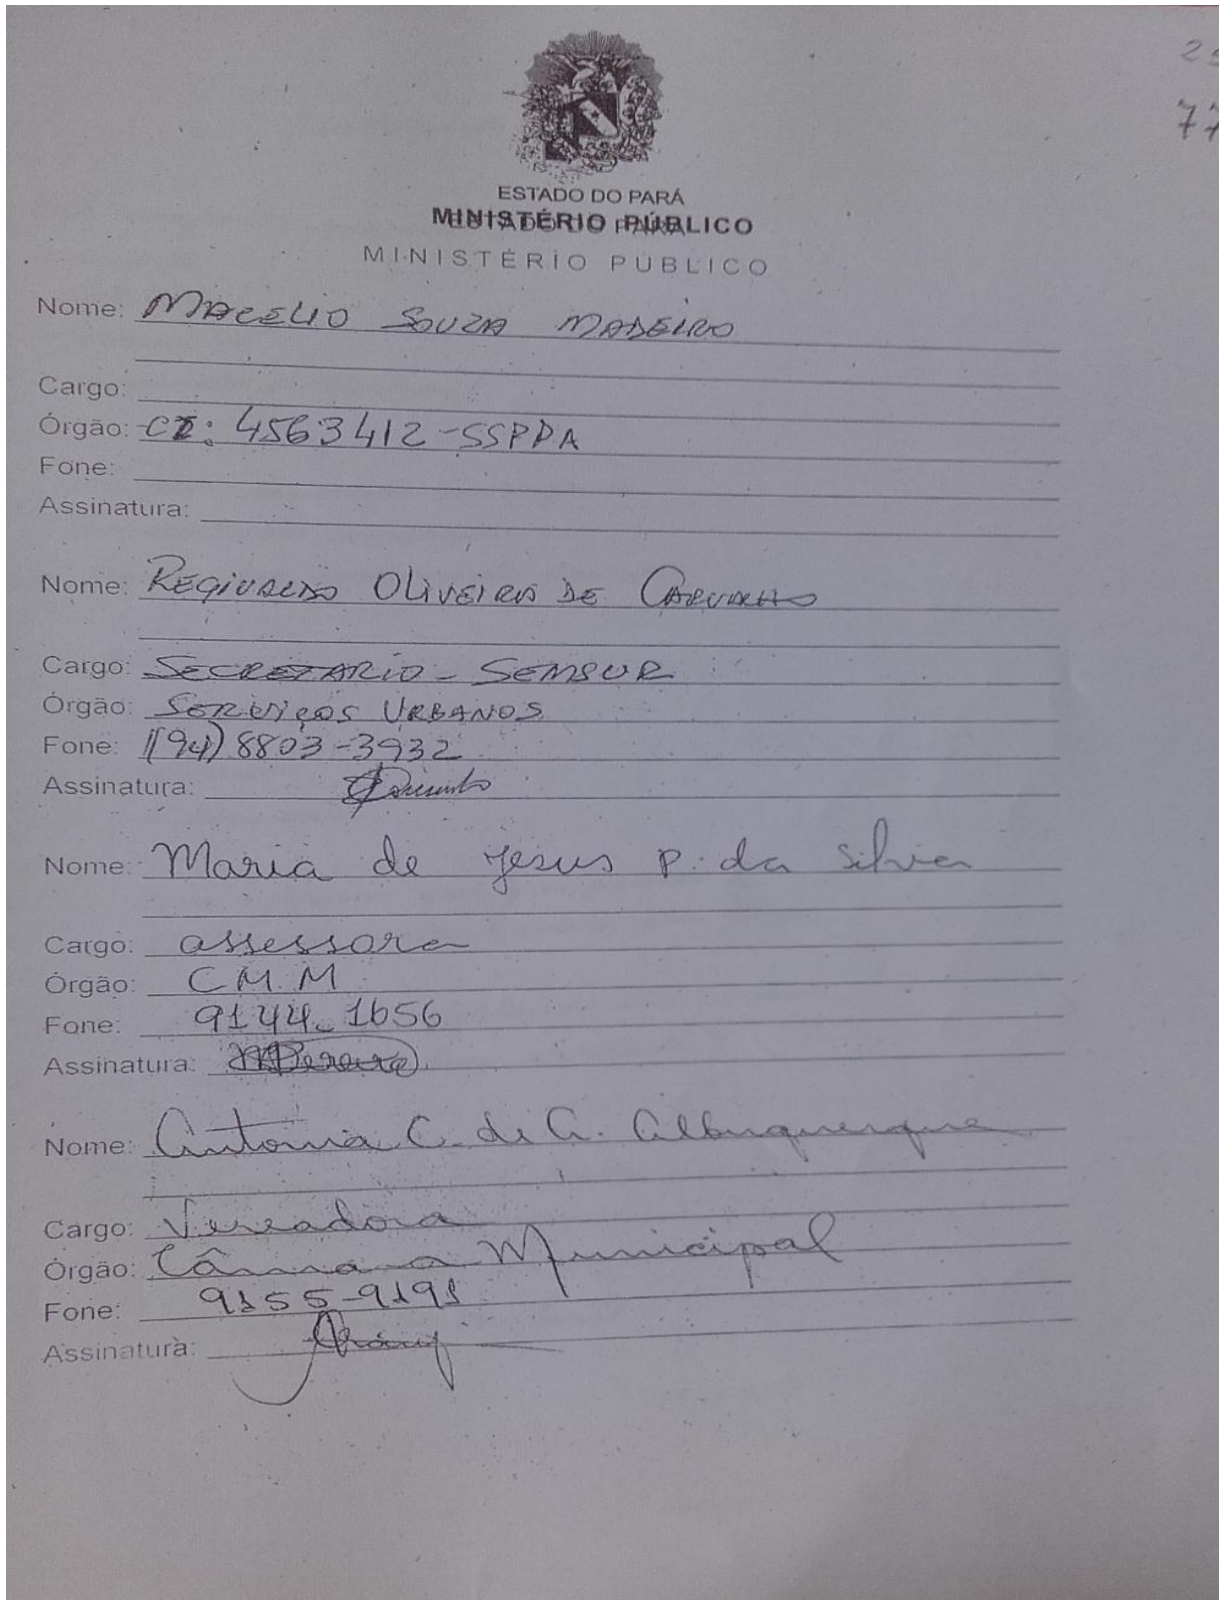 77
ESTADO DO PARÁ
MINISTÉRIO PÚBLICO
MINISTÉRIO PÚBLICO
Nome: MACELIO SOUZA MADEIRO
Cargo:
Órgão: CI: 4563412-SSPPA
Fone:
Assinatura:
Nome: REGIVALDO OLIVEIRA DE CARVALHO
Cargo: SECRETARIO - SEMSUR
Órgão: SERVIÇOS URBANOS
Fone: (94) 8803-3932
Assinatura:
Nome: Maria de Jesus P. da Silva
Cargo: assessora
Órgão: C M. M
Fone: 9144-1656
Assinatura: MPereira
Nome: Antonia C. de A. Albuquerque
Cargo: Vereadora
Órgão: Câmara Municipal
Fone: 9155-9191
Assinatura: